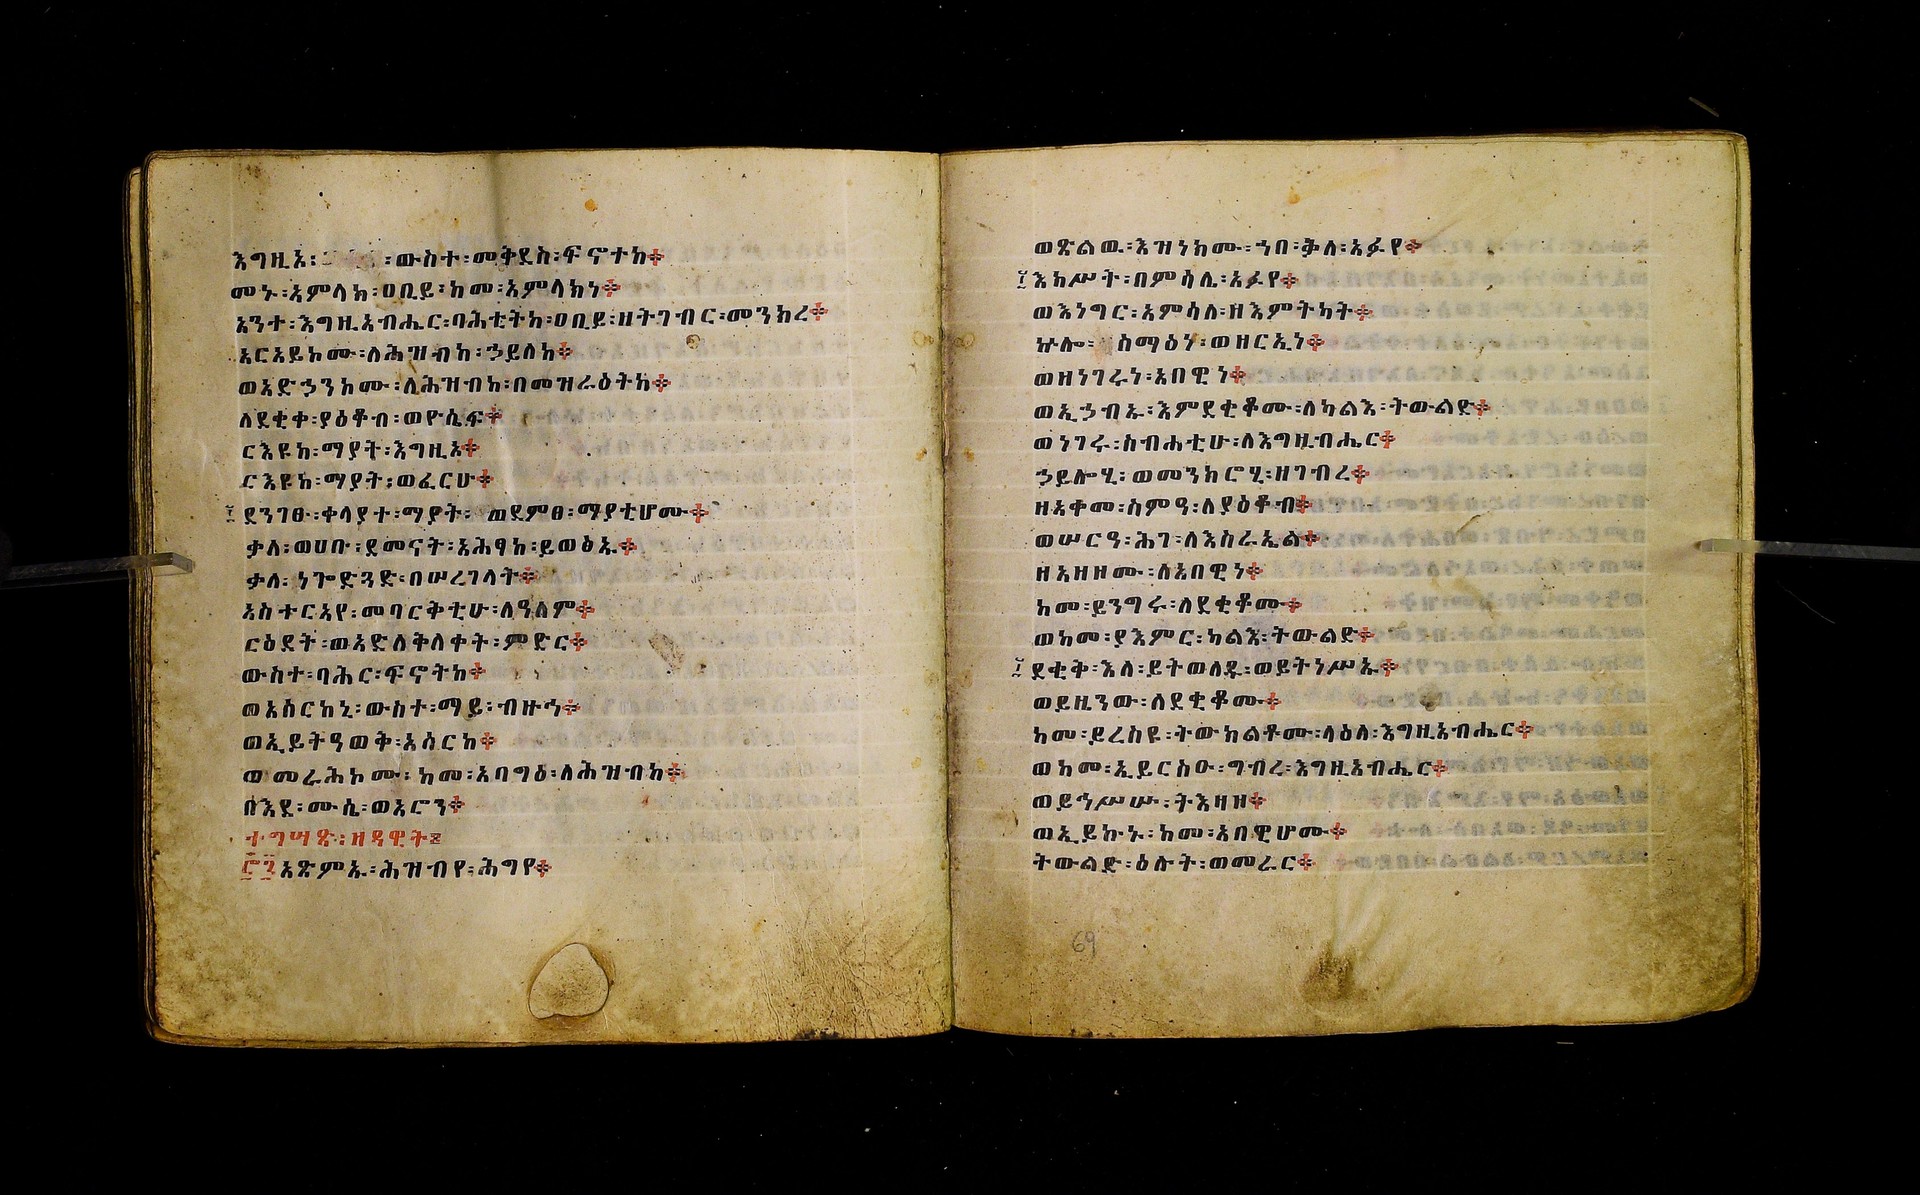 እግዚአ፡ ፡ውስተ፡መቅደስ፡ፍኖተከ፨
መኑ፡አምላክ፡ዐቢይ፡ከመ፡አምላክነ፨
አንተ፡እግዚአብሔር፡ባሕቲትከ፡ዐቢይ፡ዘትገብር፡መንክረ፨
አርአይኮሙ፡ለሕዝብከ፡ኃይለከ፨
ወአድኃንኮሙ፡ለሕዝብከ፡በመዝራዕትከ፨
ለደቂቀ፡ያዕቆብ፡ወዮሴፍ፨
ርእዩከ፡ማያት፡እግዚአ፨
ርእዩከ፡ማያት፡ወፈርሁ፨
፲ ደንገፁ፡ቀላያተ፡ማያት፡ ጠደምፀ፡ማያቲሆሙ፨
ቃለ፡ወሀቡ፡ደመናት፡አሕፃከ፡ይወፅኡ፨
ቃለ፡ነጐድጓድ፡በሠረገላት፨
አስተርአየ፡መባርቅቲሁ፡ለዓለም፨
ርዕደት፡ወአድለቅለቀት፡ምድር፨
ውስተ፡ባሕር፡ፍኖትከ፨
ወአሰርከኒ፡ውስተ፡ማይ፡ብዙኅ፨
ወኢይትዓወቅ፡አሰርከ፨
ወመራሕኮሙ፡ከመ፡አባግዕ፡ለሕዝብከ፨
በእደ፡ሙሴ፡ወአሮን፨
ተግሣጽ፡ዘዳዊት፨
፸፯አጽምኡ፡ሕዝብየ፡ሕግየ፨
ወጽልዉ፡እዝነክሙ፡ኀበ፡ቃለ፡አፉየ፨
፲እከሥት፡በምሳሌ፡አፉየ፨
ወእነግር፡አምሳለ፡ዘእምትካት፨
ኵሎ፡ ስማዕነ፡ወዘርኢነ፨
ወዘነገሩነ፡አበዊነ፨
ወኢኃብኡ፡እምደቂቆሙ፡ለካልእ፡ትውልድ፨
ወነገሩ፡ስብሐቲሁ፡ለእግዚብሔር፨
ኃይሎሂ፡ወመንክሮሂ፡ዘገብረ፨
ዘአቀመ፡ስምዓ፡ለያዕቆብ፨
ወሠርዓ፡ሕገ፡ለእስራኤል፨
ዘአዘዞሙ፡ለአበዊነ፨
ከመ፡ይንግሩ፡ለደቂቆሙ፨
ወከመ፡ያእምር፡ካልእ፡ትውልድ፨
፲ ደቂቅ፡እለ፡ይትወለዱ፡ወይትነሥኡ፨
ወይዚንው፡ለደቂቆሙ፨
ከመ፡ይረስዩ፡ትውክልቶሙ፡ላዕለ፡እግዚአብሔር፨
ወከመ፡ኢይርስዑ፡ግብረ፡እግዚአብሔር፨
ወይኅሥሡ፡ትእዛዘ፨
ወኢይኩኑ፡ከመ፡አበዊሆሙ፨
ትውልድ፡ዕሉት፡ወመራር፨
69